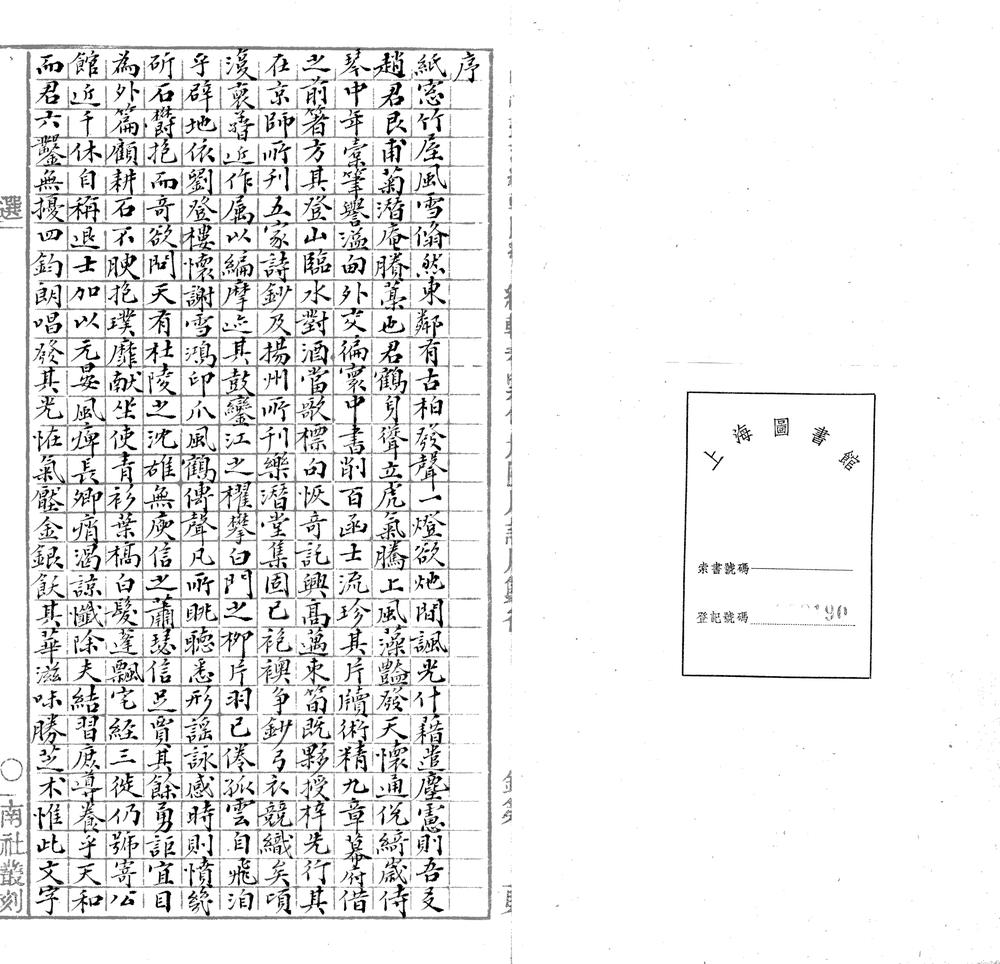 上海圖書館
索書號碼
登記號碼 190
序
紙窓竹屋風雪翛然東鄰有古柏發聲一燈欲灺閒諷光什藉遣塵憲則吾友
趙君艮甫菊潛庵賸藁也君鶴身聳立虎氣騰上風藻豔發天懷通侻綺歲侍
琴中年橐筆譽溢甸外交徧寰中書削百函士流珍其片牘術精九章幕府借
之前箸方其登山臨水對酒當歌標句恢奇託興高邁束筍既夥授梓先行其
在京師所刊五家詩鈔及揚州所刊樂潛堂集固已袍襖爭鈔弓衣競織矣頃
復裒晉近作属以編摩迹其鼓鑾江之櫂攀白門之柳片羽已倦孤雲自飛洎
乎辟地依劉登樓懷謝雪鴻印爪風鶴傳聲凡所眺聽悉形謡詠感時則憤幾
斫石欝抱而奇欲問天有杜陵之沈雄無庾信之蕭瑟信足賈其餘勇詎宜目
為外篇顧耕石不腴抱璞靡献坐使青衫葉槁白髮蓬飄宅經三徙仍號寄公
館近千休自稱退士加以元晏風痺長卿痟渴諒懺除夫結習庶導養乎天和
而君六鑿無擾四鈞朗唱發其光恠氣壓金銀飫其華滋味勝芝术惟此文字
選
南社叢刻